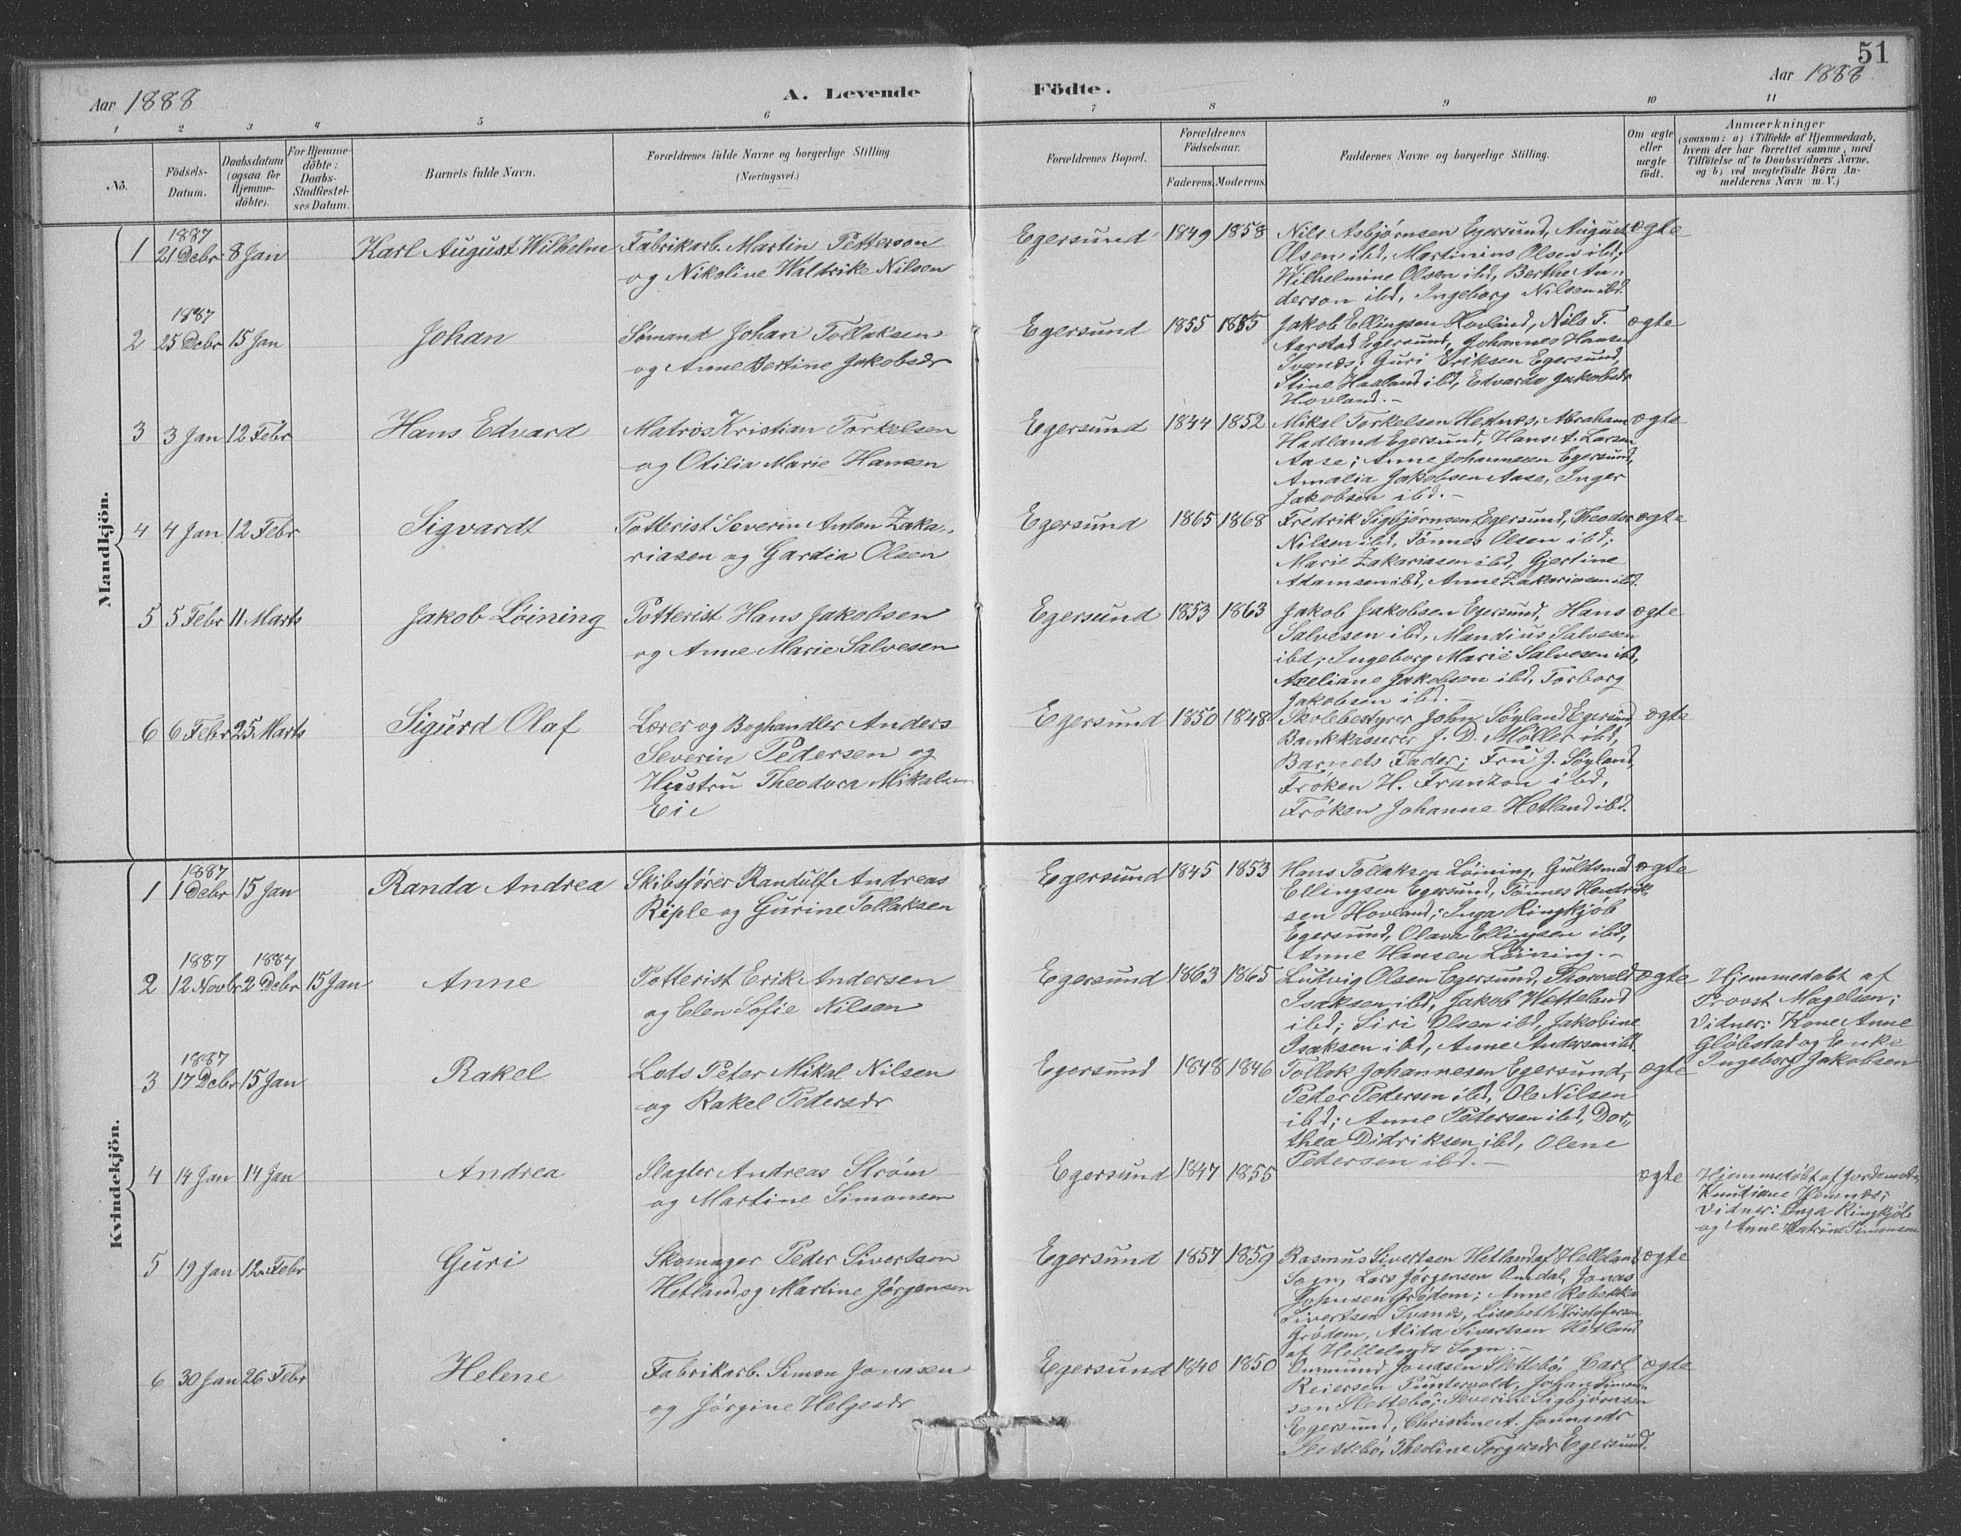 51
Aar 1888
A. Levende Födte.
Aar 1888
1 2 3 4 5 6 7 8 9 10 11
No.
Födsels-Datum.
Daabsdatum (ogsaa for Hjemme-döbte).
For Hjemme-döbte: Daabs-Stadfæstel-ses Datum.
Barnets fulde Navn.
Forældrenes fulde Navne og borgerlige Stilling (Næringsvei.)
Forældrenes Bopæl.
Forældrenes Födselsaar.
Faderens. Moderens.
Faddernes Navne og borgerlige Stilling.
Om ægte eller uægte födt.
Anmærkninger
(saasom: a) i Tilfælde af Hjemmedaab,
hvem der har forrettet samme, med
Tilföielse af to Daabsvidners Navne.
og b) ved uægtefödte Börn An-
melderens Navn m. V.)
Mandkjön.
1 1887 21 Debr 8 Jan Karl August Wilhelm
Fabrikarb. Martin Petterson
og Nikoline Waldrike Nilsen
Egersund 1849 1858
Nils Asbjørnsen Egersund, August
Olsen ibd, Martinius Olsen ibd;
Wilhelmine Olsen ibd, Berthe An-
derson ibd, Ingeborg Nilsen ibd.
ægte
2 1887 25 Debr 15 Jan Johan
Sømand Johan Tollaksen
og Anne Bertine Jakobsdr
Egersund 1855 1855
Jakob Ellingsen Hovland, Nils T.
Aarstad Egersund, Johannes Hansen
Svanæs; Guri Eriksen Egersund,
Stine Haaland ibd, Edvarda Jakobsdr
Hovland.-
ægte
3 3 Jan 12 Febr Hans Edvard
Matros Kristian Torkelsen
og Otilia Marie Hansen
Egersund 1844 1852
Mikal Torkelsen Hednæs, Abraham
Hadland Egersund, Hans A. Larsen
Aase; Anne Johannesen Egersund,
Amalia Jakobsen Aase, Inger
Jakobsen ibd.-
ægte
4 4 Jan 12 Febr Sigvardt
Potterist Severin Anton Zaka-
riasen og Gardia Olsen
Egersund 1865 1868
Fredrik Sigbjørnsen Egersund, Theodor
Nilsen ibd, Tønnes Olsen ibd;
Marie Zakariasen ibd, Gjertine
Adamsen ibd, Anne Zakariasen ibd.
ægte
5 5 Febr 11 Marts Jakob Løining
Potterist Hans Jakobsen
og Anne Marie Salvesen
Egersund 1853 1863
Jakob Jakobsen Egersund, Hans
Salvesen ibd, Mandius Salvesen
ibd; Ingeborg Marie Salvesen ibd,
Axeliane Jakobsen ibd, Torborg
Jakobsen ibd.-
ægte
6 6 Febr 25 Marts Sigurd Olaf
Lærer og Boghandler Anders
Severin Pedersen og
Hustru Theodora Mikalsen
Eie
Egersund 1850 1848
Skolebestyrer John Søyland Egersund,
Bankkasserer J. D. Møller ibd,
Barnets Fader; Fru J. Søyland,
Frøken H. Frantzon ibd,
Frøken Johanne Hetland ibd.
ægte
Kvindekjön.
1 1887 1 Debr 15 Jan Randa Andrea
Skibsfører Randulf Andreas
Riple og Gurine Tollaksen
Egersund 1845 1853
Hans Tollaksen Løining, Guldsmed
Ellingsen Egersund, Tønnes Hendrik-
sen Hovland; Inga Ringkjøb
Egersund, Olava Ellingsen ibd,
Anne Hansen Løining.-
ægte
2 1887 12 Novbr 1887 2 Debr 15 Jan Anne
Potterist Erik Andersen
og Elen Sofie Nilsen
Egersund 1863 1865
Ludvig Olsen Egersund, Thorvald
Isaksen ibd, Jakob Hetteland
ibd; Siri Olsen ibd, Jakobine
Isaksen ibd, Anne Andersen ibd.
ægte
Hjemmedøbt af
Provst Magelsen;
Vidner: Kone Anne
Gløbstad og Enke
Ingeborg Jakobsen
3 1887 17 Debr 15 Jan Rakel
Lots Peter Mikal Nilsen
og Rakel Pedersdr
Egersund 1848 1846
Tollak Johannesen Egersund,
Peder Pedersen ibd, Ole Nilsen
ibd; Anne Pedersen ibd, Dor-
thea Didriksen ibd, Olene
Pedersen ibd.-
ægte
4 14 Jan 14 Jan Andrea
Slagter Andreas Strøm
og Martine Simonsen
Egersund 1847 1855
ægte
Hjemmedøbt af Jordemoder
Knutiane
Vidner: Inga Ringkjøb
og Anne Katrine Simonsen
5 19 Jan 12 Febr Guri
Skomager Peder Sivertsen
Hetland og Martine Jørgensen
Egersund 1857 1859
Rasmus Sivertsen Hetland af Helleland
Sogn, Lars Jørgensen Omdal, Jonas
Johnsen Grødem; Anne Rebekka
Sivertsen Svanæs, Lisabeth Kristofersen
Grødem, Alida Sivertsen Hetland
af Hellelands Sogn.-
ægte
6 30 Jan 26 Febr Helene
Fabrikarb. Simon Jonasen
og Jørgine Helgesdr
Egersund 1840 1850
Ommund Jonasen Slettebø, Carl
Reiersen Puntervold, Johan Simon-
sen Slettebø; Severine Sigbjørnsen
Egersund, Christine A. Jonasdr
Slettebø, Theoline Torgersdr Egersund.
ægte